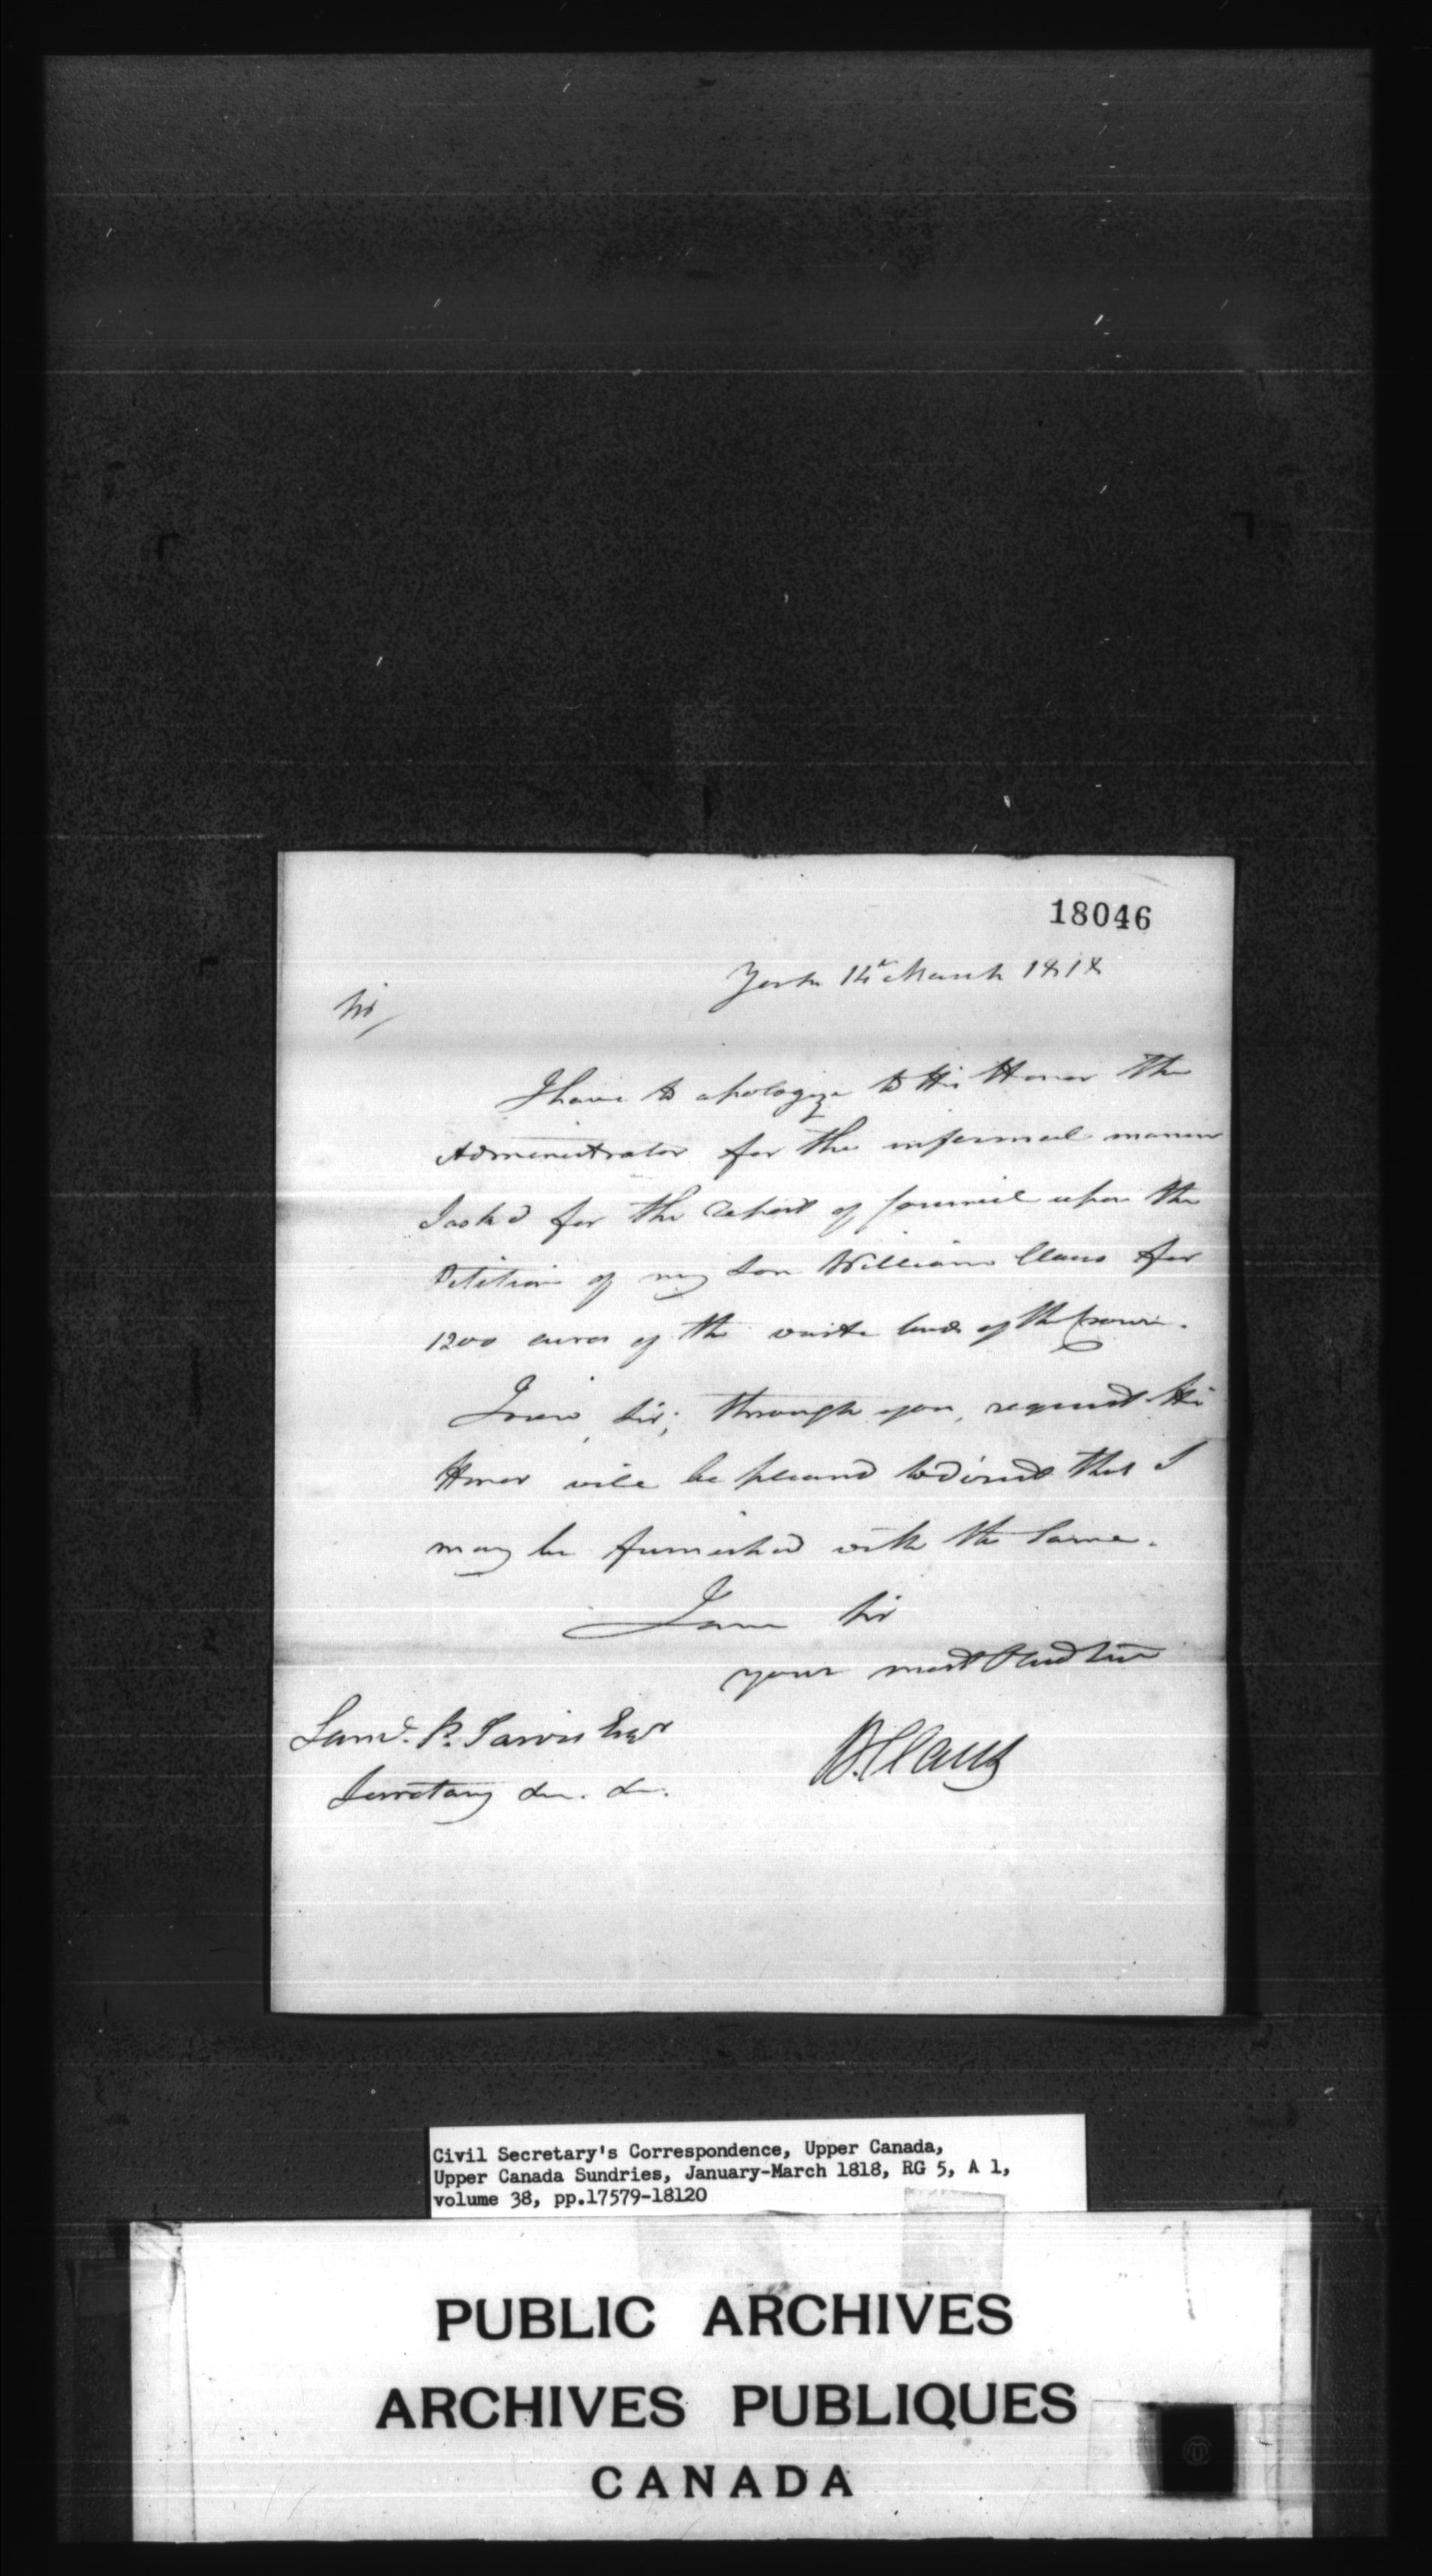 18046
York 14th March 1818
Sir/
I have to apologize to His Honor the
Administrator for the informal manner
I ask'd for the Report of Council upon the
Petition of my Son William Claus for
1200 acres of the waste lands of the Crown.
I now, Sir, through you, request His
Honor will be pleased to direct that I
may be furnished with the Same.
I am Sir
your most Obed Servt
Saml. P. Jarvis Esqr
W. Claus
Secretary &c. &c.
Civil Secretary's Correspondence, Upper Canada,
Upper Canada Sundries, January-March 1818, RG 5, A 1,
volume 38, pp.17579-18120
PUBLIC ARCHIVES
ARCHIVES PUBLIQUES
CANADA